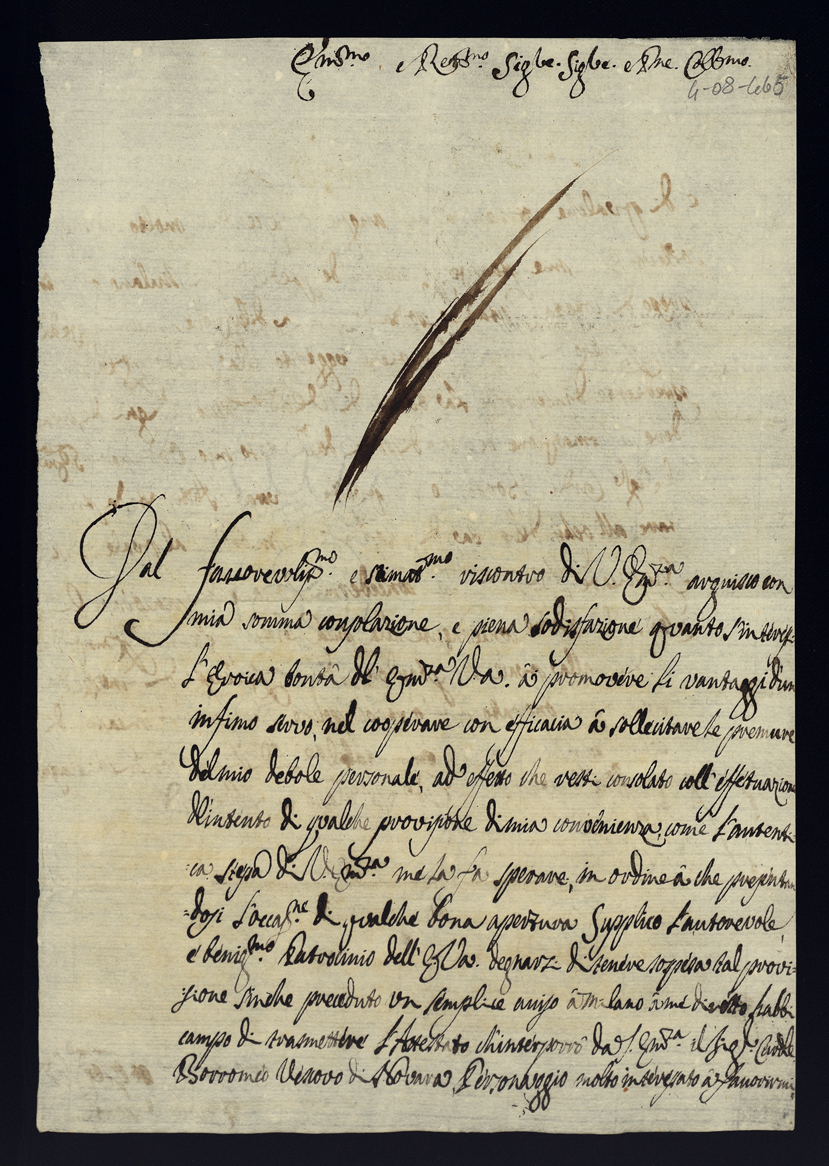 Em.mo e Re.mo Sig.re Sig.re e P.ne Coll.mo
4-08-465
Dal favorevoliss.mo e stimat.mo riscontro di V. Em.za arguisco con
mia somma consolazione, e piena sodisfazione quanto s'interess
l'Eroica bontà dell' Em.za V.a. à promovere li vantaggi d'un
infimo servo, nel cooperare con efficacia à sollecitare le premure
del mio debole personale, ad effetto che resti consolato coll'effettuazione
dell'intento di qualche provisione di mia convenienza, come l'autenti-
ca stessa di V. Em.za me la fa sperare, in ordine à che presentan
-dosi l'occas.ne di qualche bona apertura Supplico l'autorevole
e benig.mo Patrocinio dell' E.V.a. degnarsi di tenere sospesa tal provi-
sione sinche preceduto un semplice aviso à Milano à me diretto, habbi
campo di trasmettere l'Attestato ch'interporrò da S. Em.za il Sig.r Card.le
Borromeo Vescovo di Novara, Personaggio molto interessato à favorirmi